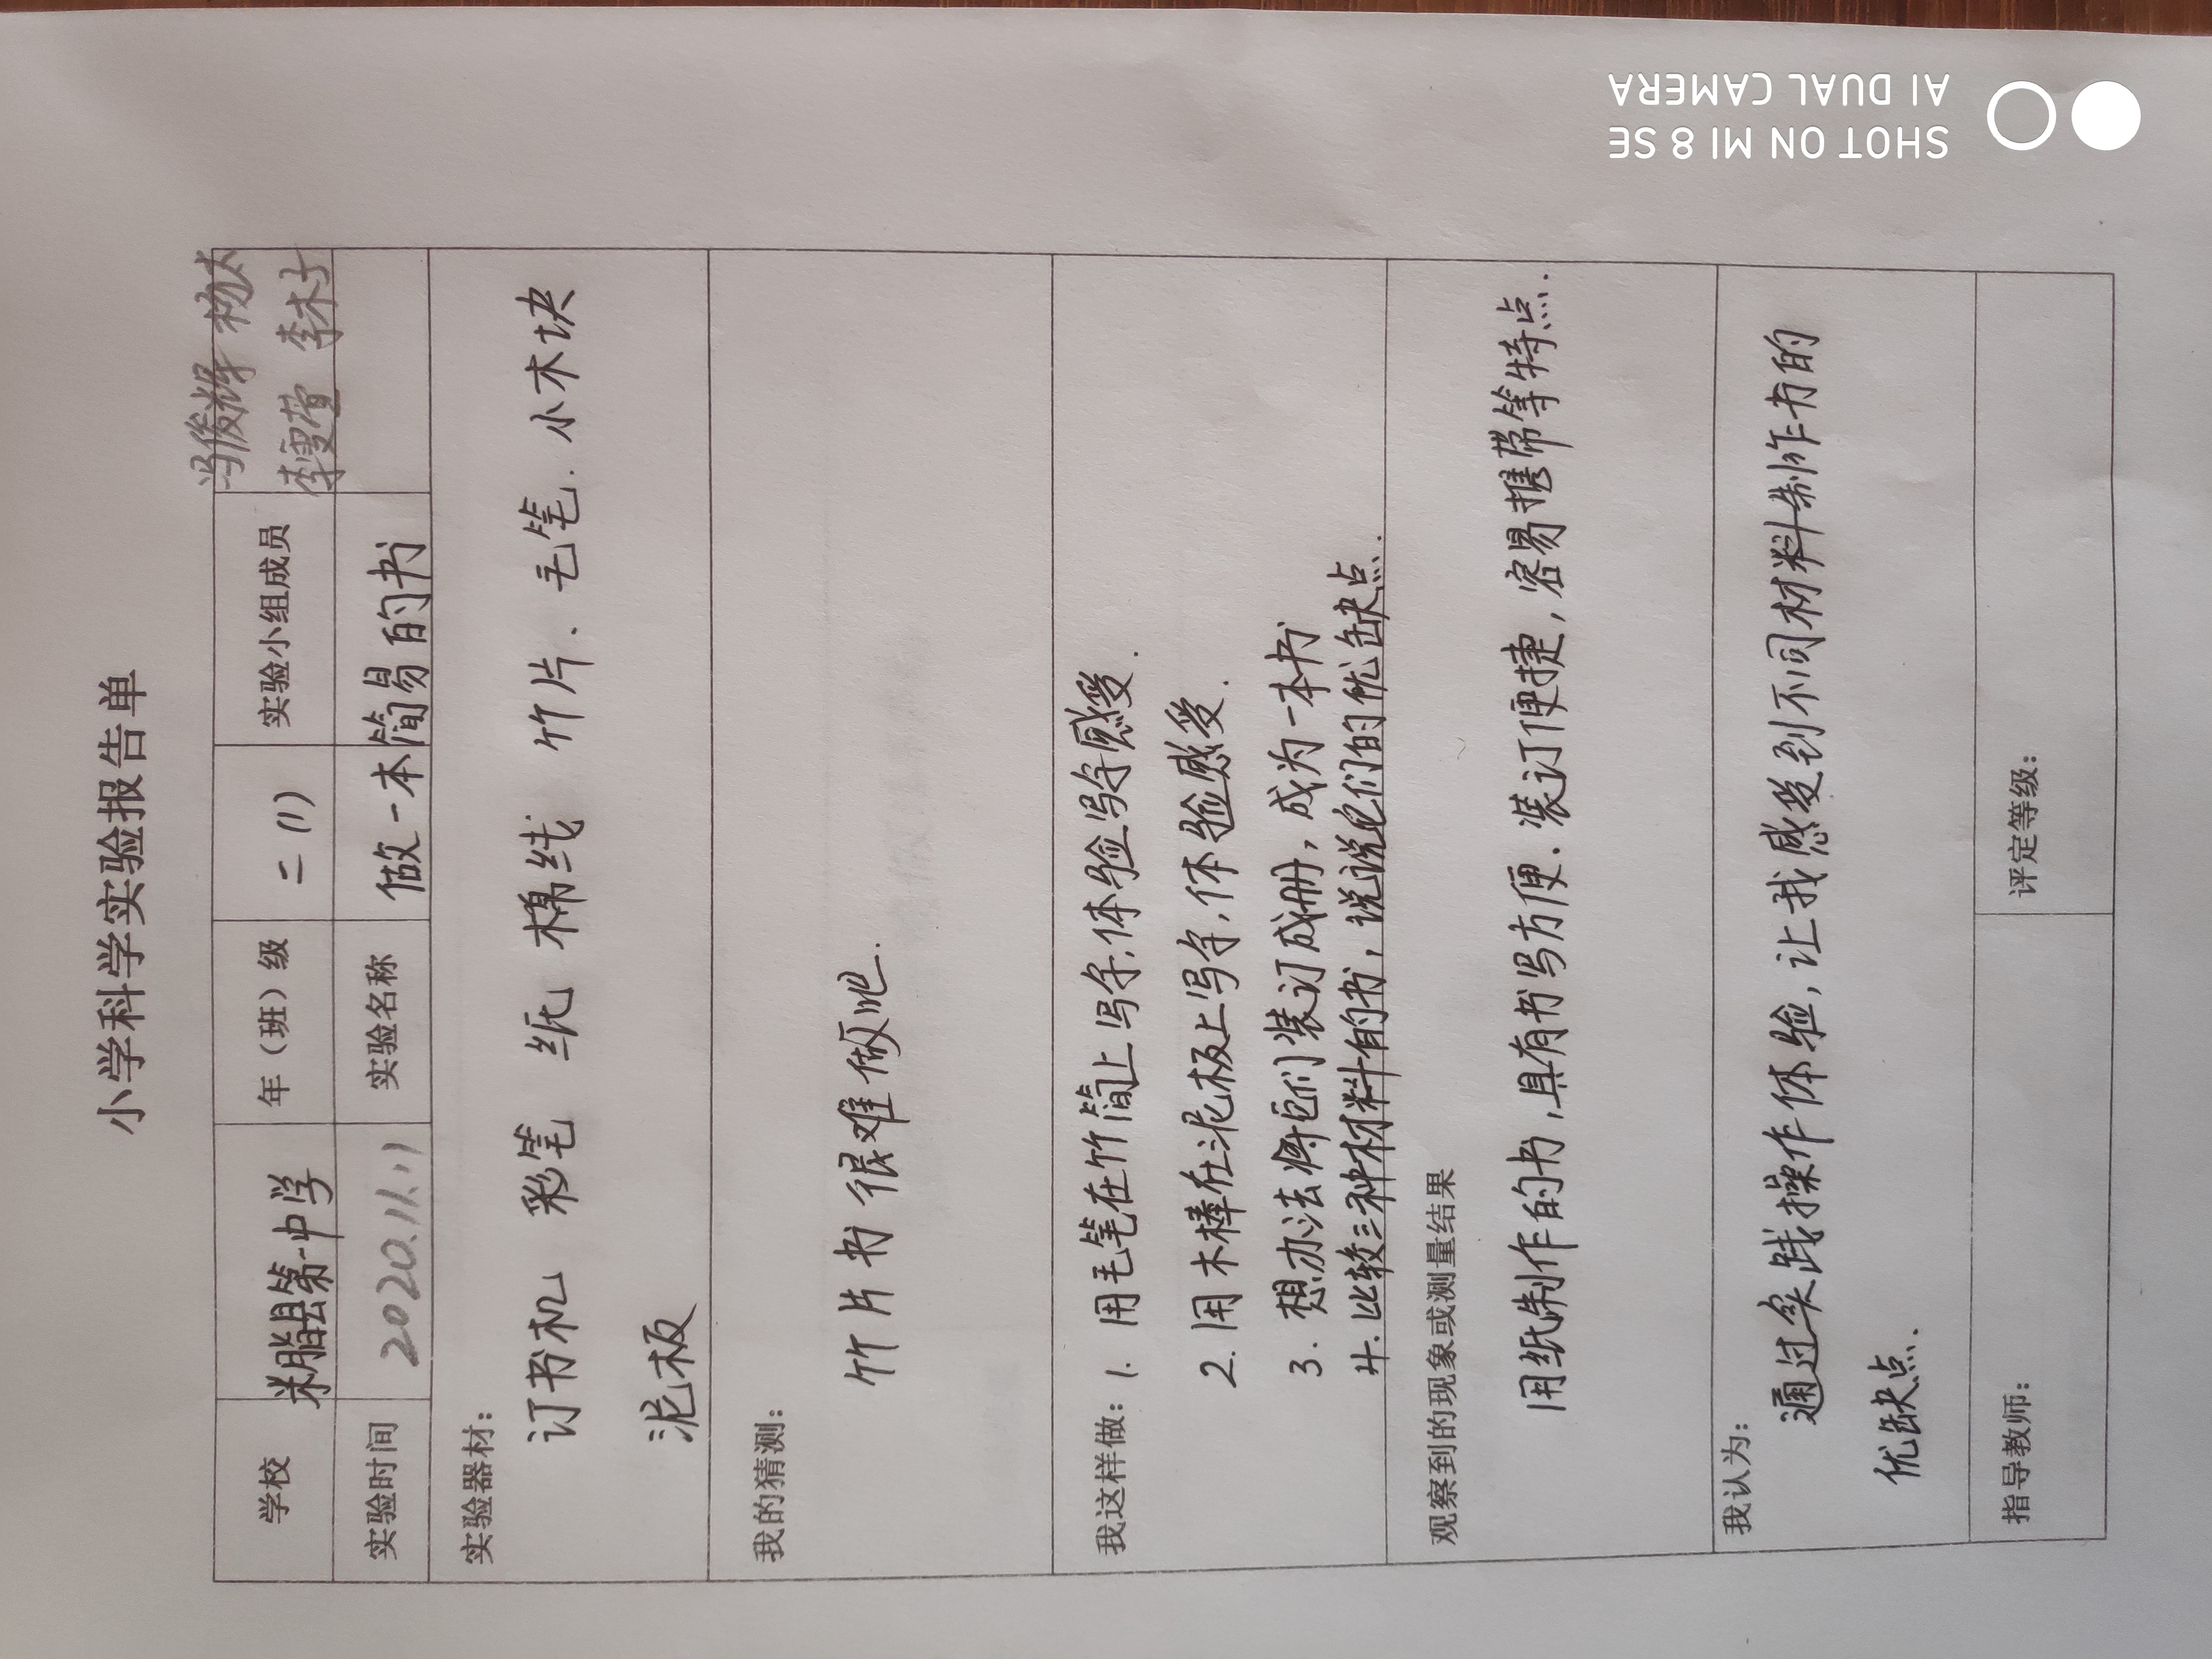 小学科学实验报告单
学校 米脂县第一中学 年（班）级 二(1) 实验小组成员 冯俊辉
李雯萱 李木子
实验时间 2020.11.11 实验名称 做一本简易的书
实验器材：
订书机 彩笔 纸 棉线 竹片、毛笔.小木块
泥板
我的猜测：
竹片书很难做吧.
我这样做：1. 用毛笔在竹简上写字,体验写字感受.
2.用木棒在泥板上写字,体验感受.
3. 想办法将它们装订成册，成为一本书
4.比较三种材料的书，说说它们的优缺点.
观察到的现象或测量结果
用纸制作的书,具有书写方便.装订便捷，容易携带等特点.
我认为：
通过实践操作体验,让我感受到不同材料制作书的
优缺点.
指导教师： 评定等级：
SHOT ON MI 8 SE
AI DUAL CAMERA